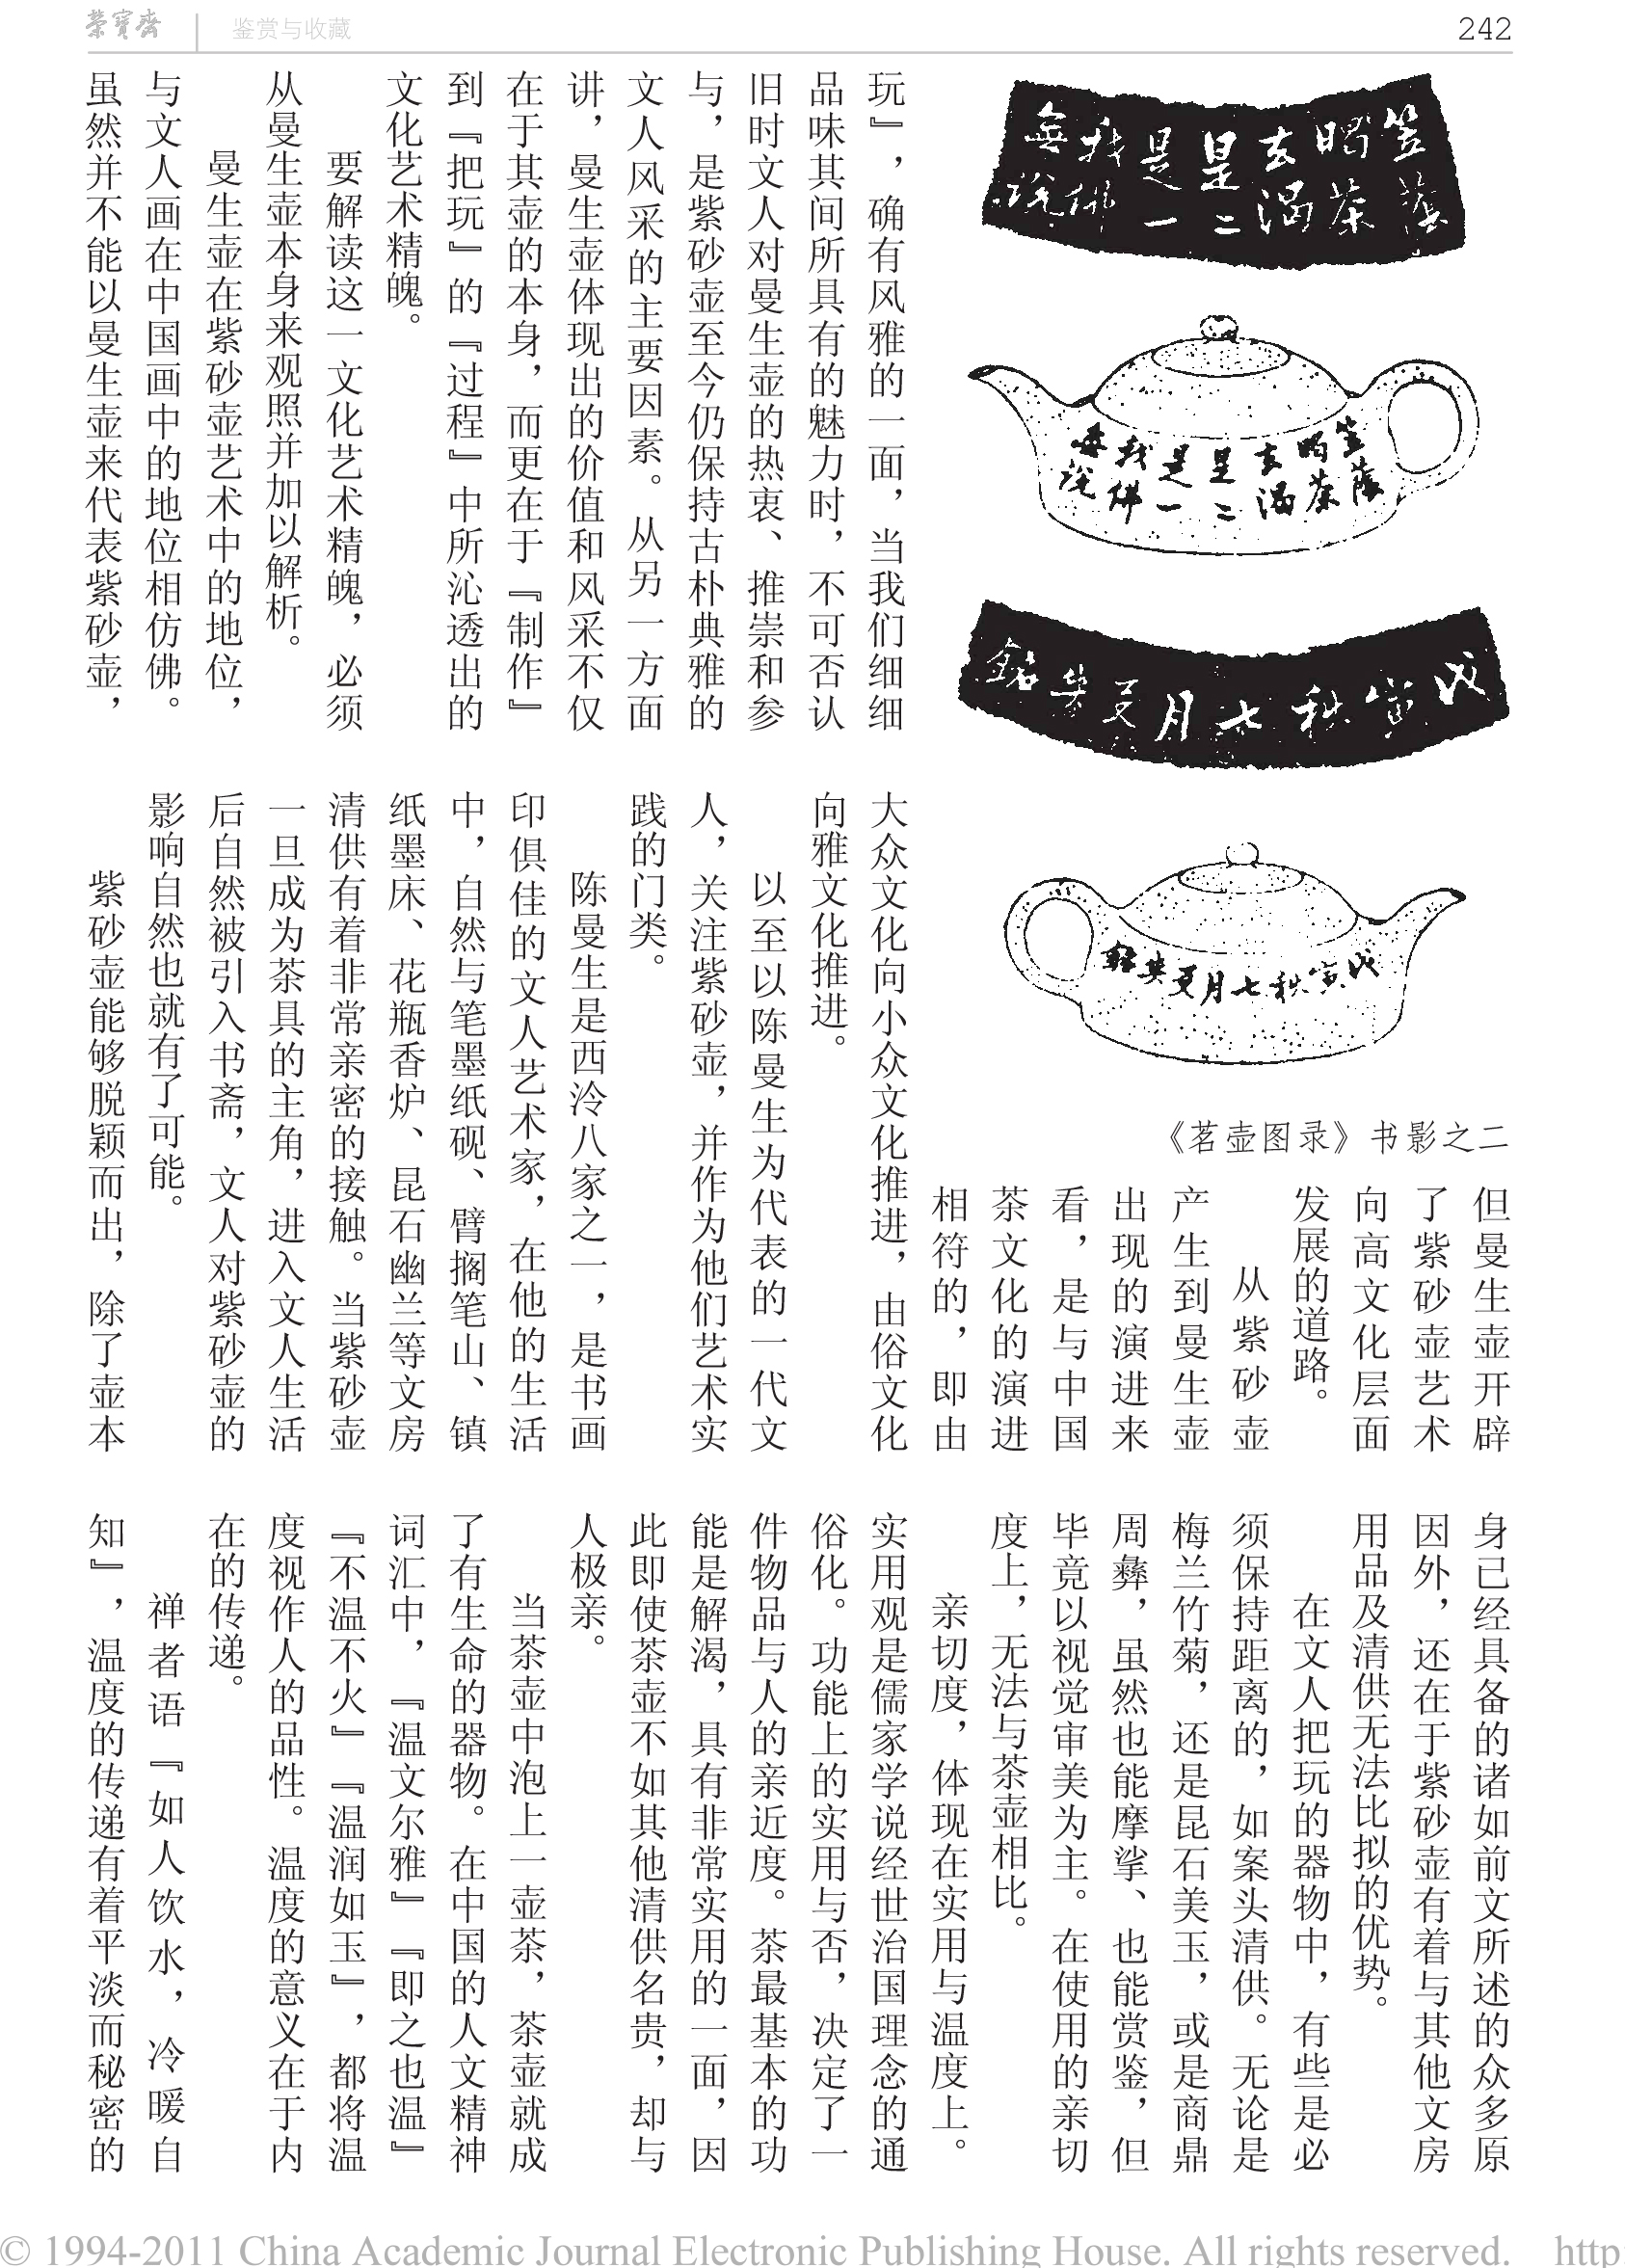 荣宝斋
鉴赏与收藏
242
笠荫
暍茶
去渴
是二
是一
我佛
无说
笠荫
暍茶
去渴
是二
是一
我佛
无说
戊寅秋七月
铭
戊寅秋七月
《茗壶图录》书影之二
玩』，确有风雅的一面，当我们细细
品味其间所具有的魅力时，不可否认
旧时文人对曼生壶的热衷、推崇和参
与，是紫砂壶至今仍保持古朴典雅的
文人风采的主要因素。从另一方面
讲，曼生壶体现出的价值和风采不仅
在于其壶的本身，而更在于『制作』
到『把玩』的『过程』中所沁透出的
文化艺术精魄。
要解读这一文化艺术精魄，必须
从曼生壶本身来观照并加以解析。
曼生壶在紫砂壶艺术中的地位，
与文人画在中国画中的地位相仿佛。
虽然并不能以曼生壶来代表紫砂壶，
但曼生壶开辟
了紫砂壶艺术
向高文化层面
发展的道路。
从紫砂壶
产生到曼生壶
出现的演进来
看，是与中国
茶文化的演进
相符的，即由
大众文化向小众文化推进，由俗文化
向雅文化推进。
以至以陈曼生为代表的一代文
人，关注紫砂壶，并作为他们艺术实
践的门类。
陈曼生是西泠八家之一，是书画
印俱佳的文人艺术家，在他的生活
中，自然与笔墨纸砚、臂搁笔山、镇
纸墨床、花瓶香炉、昆石幽兰等文房
清供有着非常亲密的接触。当紫砂壶
一旦成为茶具的主角，进入文人生活
后自然被引入书斋，文人对紫砂壶的
影响自然也就有了可能。
紫砂壶能够脱颖而出，除了壶本
身已经具备的诸如前文所述的众多原
因外，还在于紫砂壶有着与其他文房
用品及清供无法比拟的优势。
在文人把玩的器物中，有些是必
须保持距离的，如案头清供。无论是
梅兰竹菊，还是昆石美玉，或是商鼎
周彝，虽然也能摩挲、也能赏鉴，但
毕竟以视觉审美为主。在使用的亲切
度上，无法与茶壶相比。
亲切度，体现在实用与温度上。
实用观是儒家学说经世治国理念的通
俗化。功能上的实用与否，决定了一
件物品与人的亲近度。茶最基本的功
能是解渴，具有非常实用的一面，因
此即使茶壶不如其他清供名贵，却与
人极亲。
当茶壶中泡上一壶茶，茶壶就成
了有生命的器物。在中国的人文精神
词汇中，『温文尔雅』『即之也温』
『不温不火』『温润如玉』，都将温
度视作人的品性。温度的意义在于内
在的传递。
禅者语『如人饮水，冷暖自
知』，温度的传递有着平淡而秘密的
© 1994-2011 China Academic Journal Electronic Publishing House. All rights reserved. http: